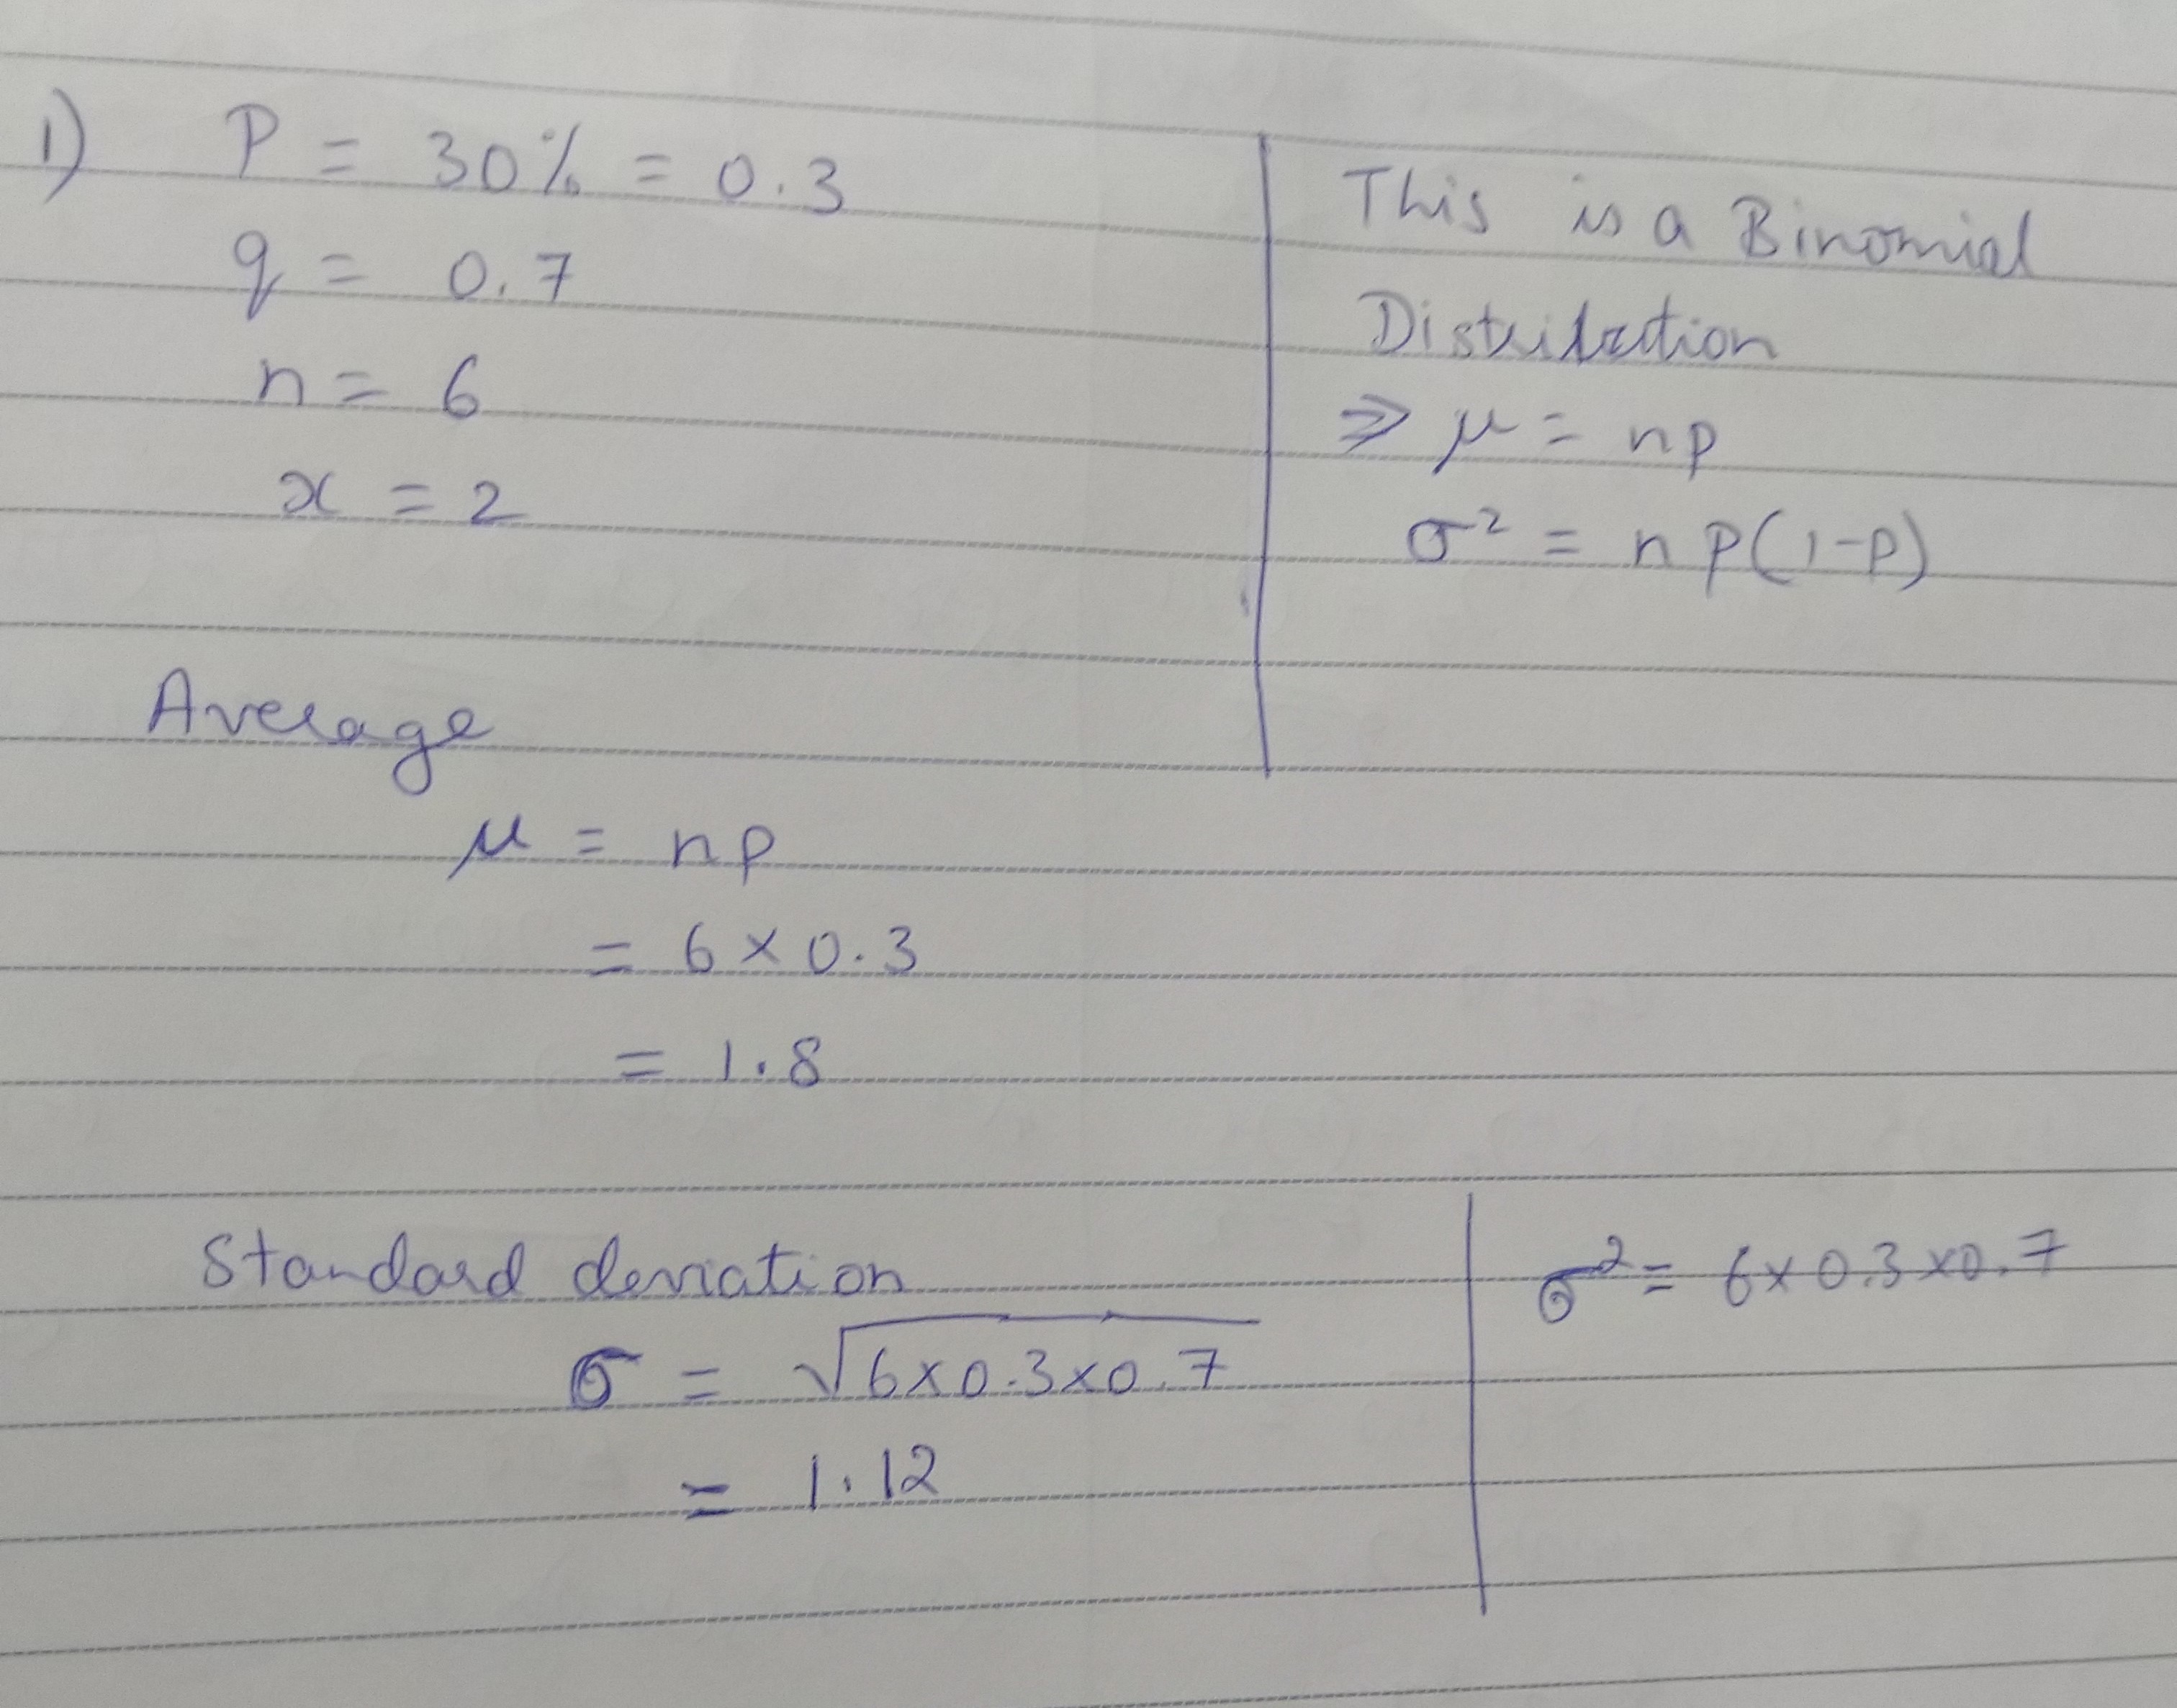 1) P = 30% = 0.3
q = 0.7
n = 6
x = 2
This is a Binomial
Distribution
⇒ μ = np
σ² = np(1-p)
Average
μ = np
= 6 × 0.3
= 1.8
Standard deviation
σ = √6×0.3×0.7
= 1.12
σ² = 6×0.3×0.7